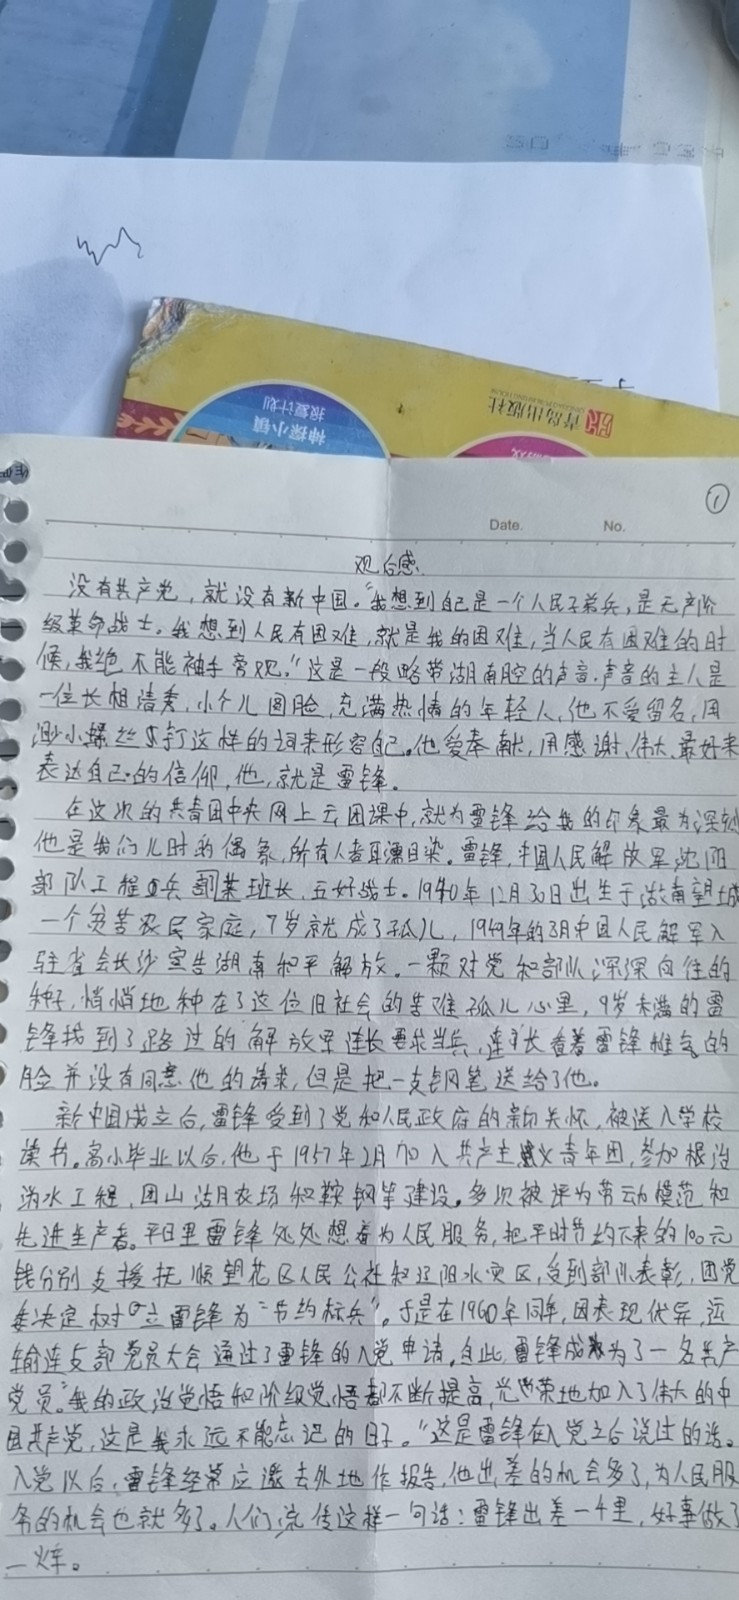 神探小镇
报复计划
青岛出版社
①
Date.
No.
观后感.
没有共产党，就没有新中国。“我想到自己是一个人民子弟兵，是无产阶
级革命战士。我想到人民有困难，就是我的困难，当人民有困难的时
候，我绝不能袖手旁观。”这是一段略带湖南腔的声音.声音的主人是
一位长相清秀，小个儿圆脸，充满热情的年轻人，他不爱留名，用
渺小螺丝钉这样的词来形容自己。他爱奉献，用感谢、伟大、最好来
表达自己的信仰，他，就是雷锋。
在这次的共青团中央网上云团课中，就为雷锋给我的印象最为深刻
他是我们儿时的偶象，所有人耳濡目染。雷锋，中国人民解放军沈阳
部队工程兵某班长、五好战士。1940年12月30日出生于湖南望城
一个贫苦农民家庭，7岁就成了孤儿，1949年的8月中国人民解军入
驻省会长沙宣告湖南和平解放。一颗对党和部队深深向往的
种子，悄悄地种在了这位旧社会的苦难孤儿心里，9岁未满的雷
锋找到了路过的解放军连长要求当兵，连长看着雷锋稚气的
脸并没有同意他的请求，但是把一支钢笔送给了他。
新中国成立后，雷锋受到了党和人民政府的亲切关怀，被送入学校
读书。高小毕业以后，他于1957年2月加入共产主义青年团，参加根治
沩水工程，团山湖农场和鞍钢等建设。多次被评为劳动模范和
先进生产者。平日里雷锋处处想着为人民服务，把平时节约下来的100元
钱分别支援抚顺望花区人民公社和辽阳水灾区，受到部队表彰，团党
委决定树立雷锋为“节约标兵”。于是在1960年同年，因表现优异，运
输连支部党员大会通过了雷锋的入党申请，自此，雷锋成为了一名共产
党员。“我的政治觉悟和阶级觉悟都不断提高，光荣地加入了伟大的中
国共产党，这是我永远不能忘记的日子。”这是雷锋在入党之后说过的话。
入党以后，雷锋经常应邀去外地作报告，他出差的机会多了，为人民服
务的机会也就多了。人们流传这样一句话：雷锋出差一千里，好事做了
一火车。